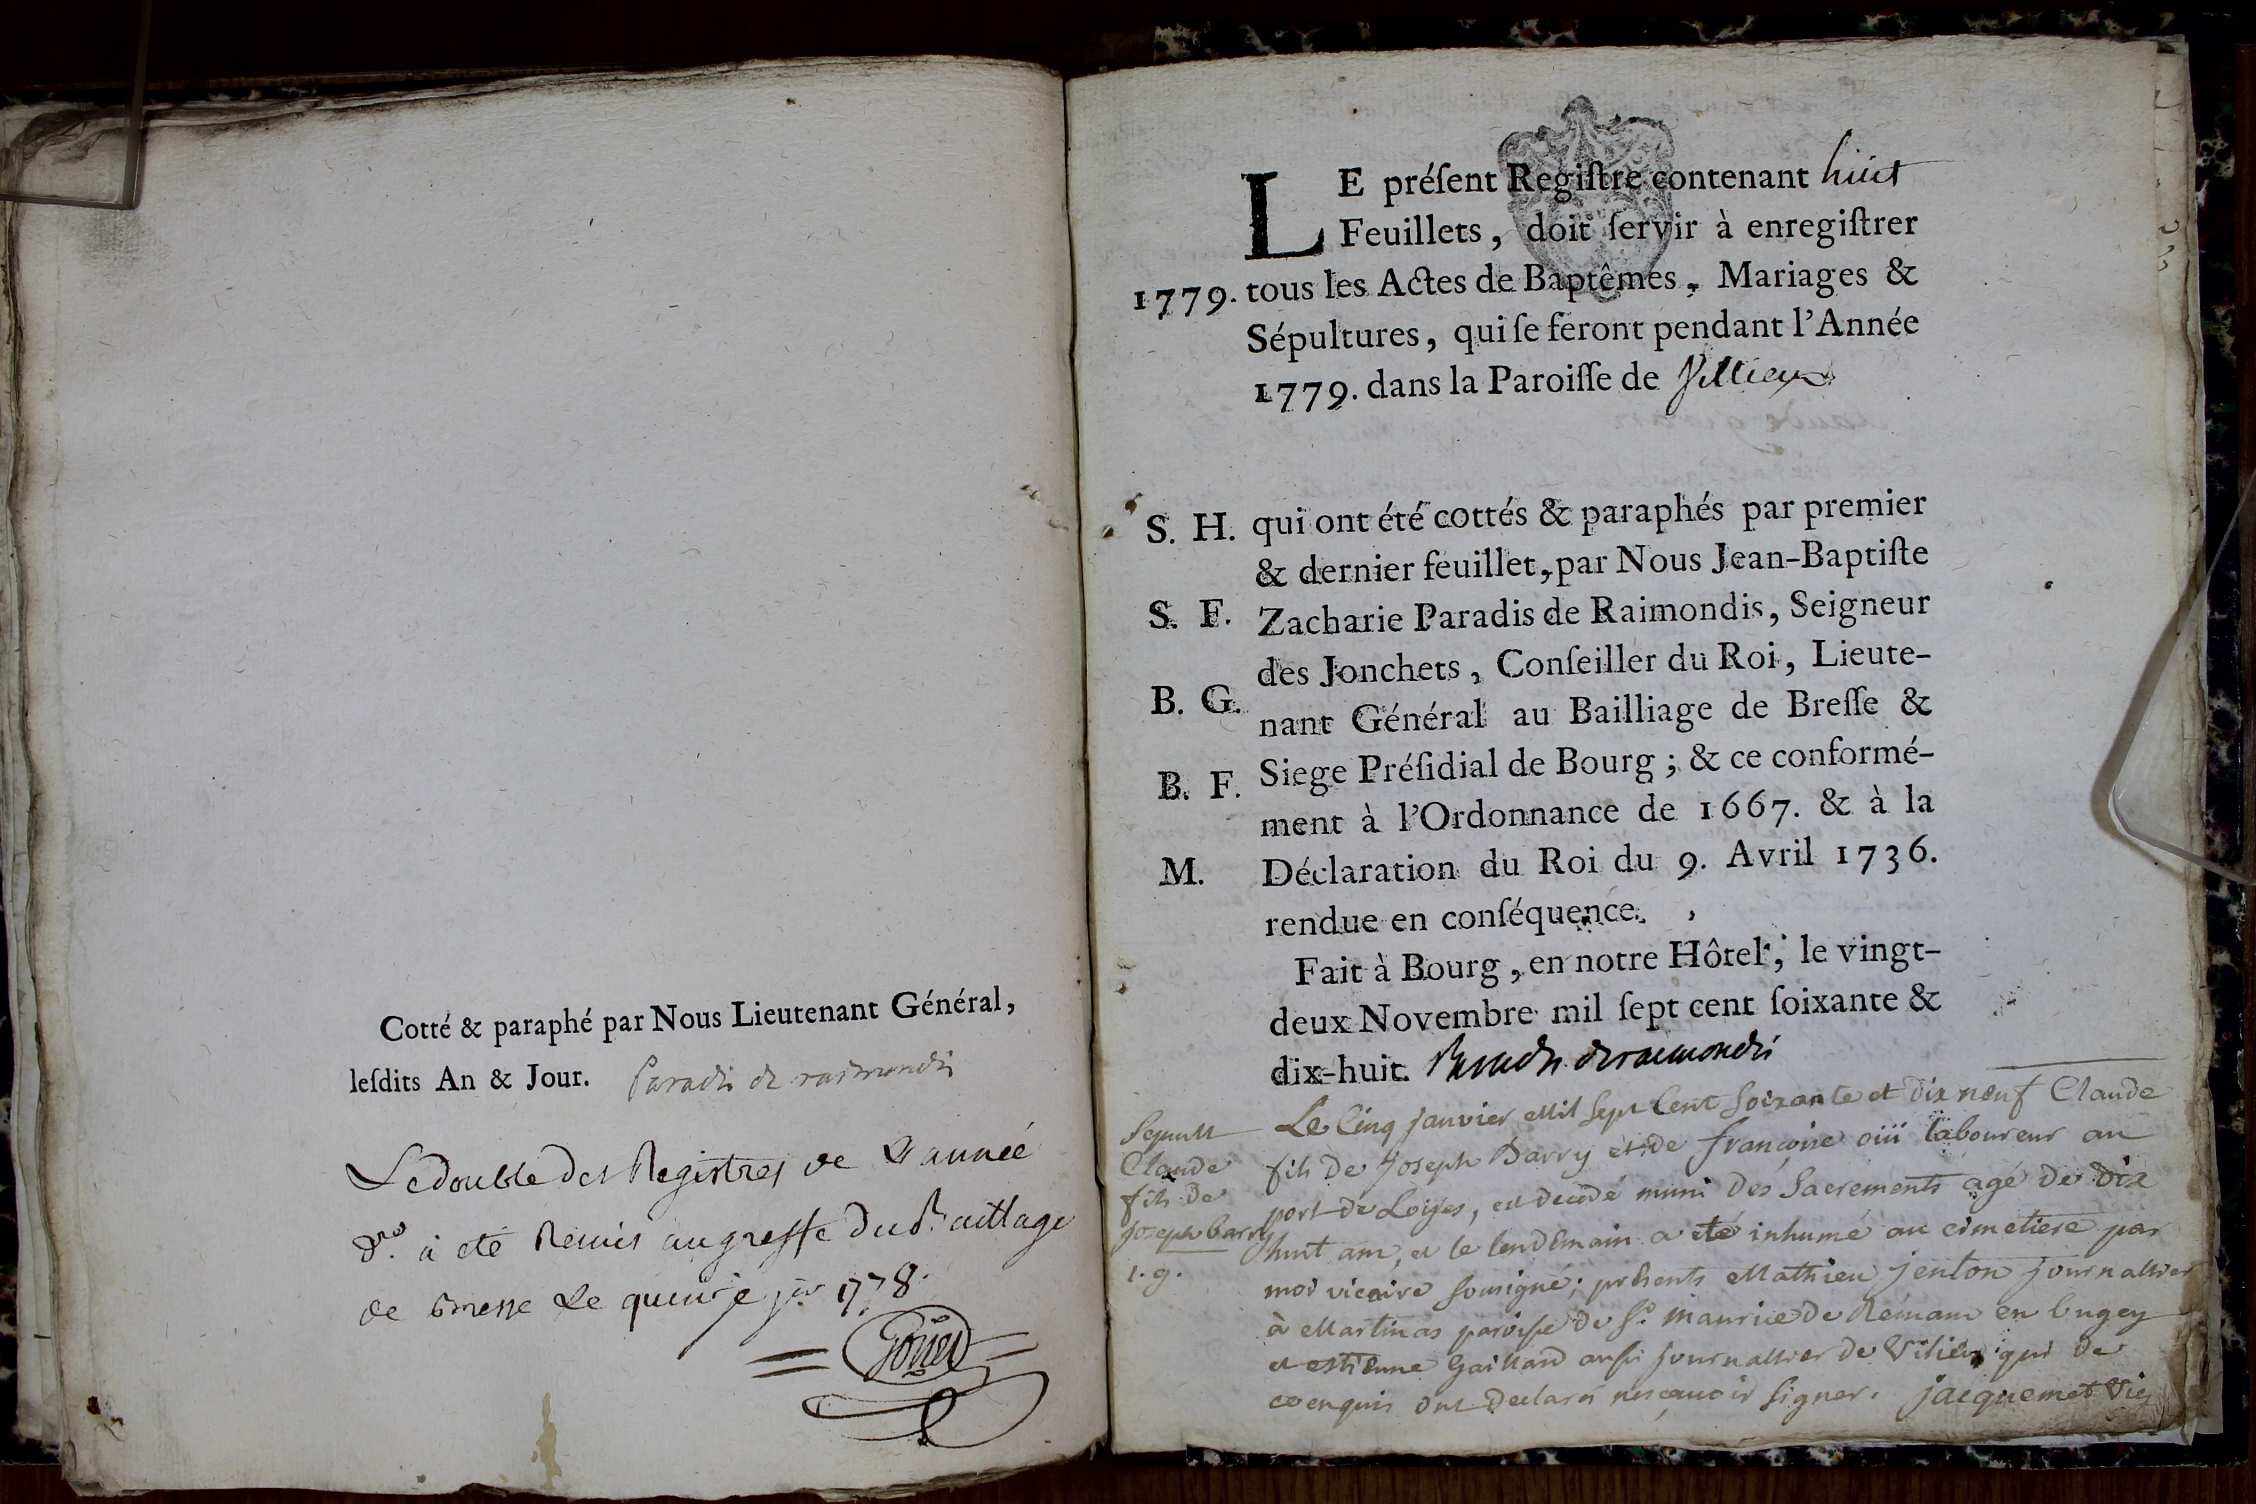 Cotté & paraphé par Nous Lieutenant Général,
lesdits An & Jour. Paradis de raimondis
Le double des Registres de L'année
dre. a eté Remis au greffe du Bailliage
de Bresse Le quinze jer 1778.
LE présent Registre contenant huit
Feuillets, doit servir à enregistrer
1779. tous les Actes de Baptêmes, Mariages &
Sépultures, qui se feront pendant l'Année
1779. dans la Paroisse de Villieux
S. H. qui ont été cottés & paraphés par premier
& dernier feuillet, par Nous Jean-Baptiste
S. F. Zacharie Paradis de Raimondis, Seigneur
des Jonchets, Conseiller du Roi, Lieute-
B. G. nant Général au Bailliage de Bresse &
B. F. Siege Présidial de Bourg ; & ce conformé-
ment à l'Ordonnance de 1667. & à la
M. Déclaration du Roi du 9. Avril 1736.
rendue en conséquence.
Fait à Bourg, en notre Hôtel, le vingt-
deux Novembre mil sept cent soixante &
dix-huit. Paradis de raimondis
Sepult
Claude
fils de
Joseph barry
1. g.
Le Cinq janvier Mil Sept Cent Soixante et dix neuf Claude
fils de Joseph Barry et de françoise laboureur au
port de Loyes, est decedé muni des Sacrements agé de dix
huit ans, et le lendemain a eté inhumé au cimetiere par
moi vicaire sousigné ; présents Mathieu jenton journallier
à Martinas paroisse de St. maurice de Rémans en bugey
et estienne Gaillard aussi journallier de Vilieu qui de
ce enquis ont declaré ne sçavoir signer. jacquemet Vic